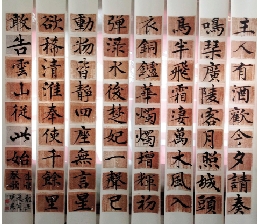 主人有酒歡今夕請奏
鳴琴廣陵客月照城頭
烏半飛霜淒萬木風入
衣銅鑪華燭燭增輝初
彈淥水後楚妃一聲已
動物皆靜四座無言星
欲稀清淮奉使千餘里
敢告雲山從此始